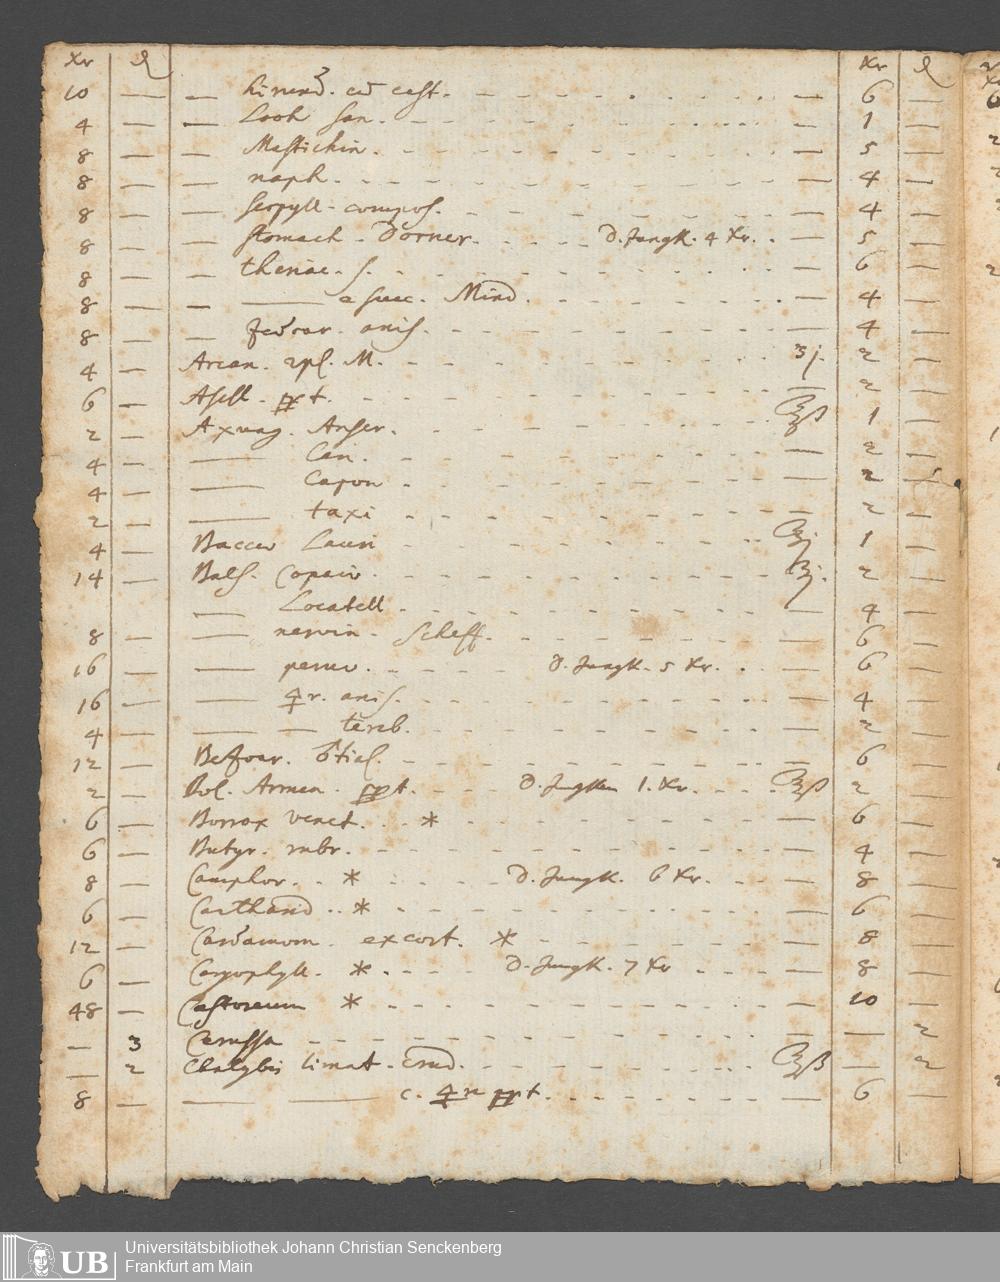 Xr ₰ Xr ₰
10 — — hirund. cū cast. — 6 —
4 — — Looh san. — 1 —
8 — — Mastichin. — 5 —
8 — — naph. — 4 —
8 — — serpyll. compos. — 4 —
8 — — stomach. Dorner. D. Jungk. 4 Xr. — 5 —
8 — — theriac. s. — 6 —
8 — — — e succ. Mind. — 4 —
8 — — anis. — 4 —
4 — Arcan. dpl. M. ʒj. 2 —
6 — Asell. ppt. — 2 —
2 — Axung. Anser. ℥ß 1 —
4 — — Can. — 2 —
4 — — Capon — 2 —
2 — — taxi — 2 —
4 — Baccar Lauri ℥j. 1 —
14 — Bals. Copaiv. ʒj. 2 —
— Locatell. — 4 —
8 — — nervin. Scheff. — 6 —
16 — — peruv. D. Jungk. 5 Xr. — 6 —
16 — — 🜍r. anis. — 4 —
4 — — — tereb. — 2 —
12 — Bezoar. — 6 —
2 — Bol. Armen. ppt. D. Jungken 1. Xr. ℥ß 2 —
6 — Borrax venet. * — 6 —
6 — Butyr. — 4 —
8 — Camphor. * D. Jungk. 6 Xr. — 8 —
6 — Carthami * — 6 —
12 — Cardamom. excort. * — 8 —
6 — Caryophyll. * D. Jungk. 7 Xr — 8 —
48 — Castoreum * — 10 —
— 3 Cerussa — 2
— 2 Chalybis limat. crud. ℥ß — 2
8 — — — c. 🜍re ppt. — 6 —
UB
Universitätsbibliothek Johann Christian Senckenberg
Frankfurt am Main